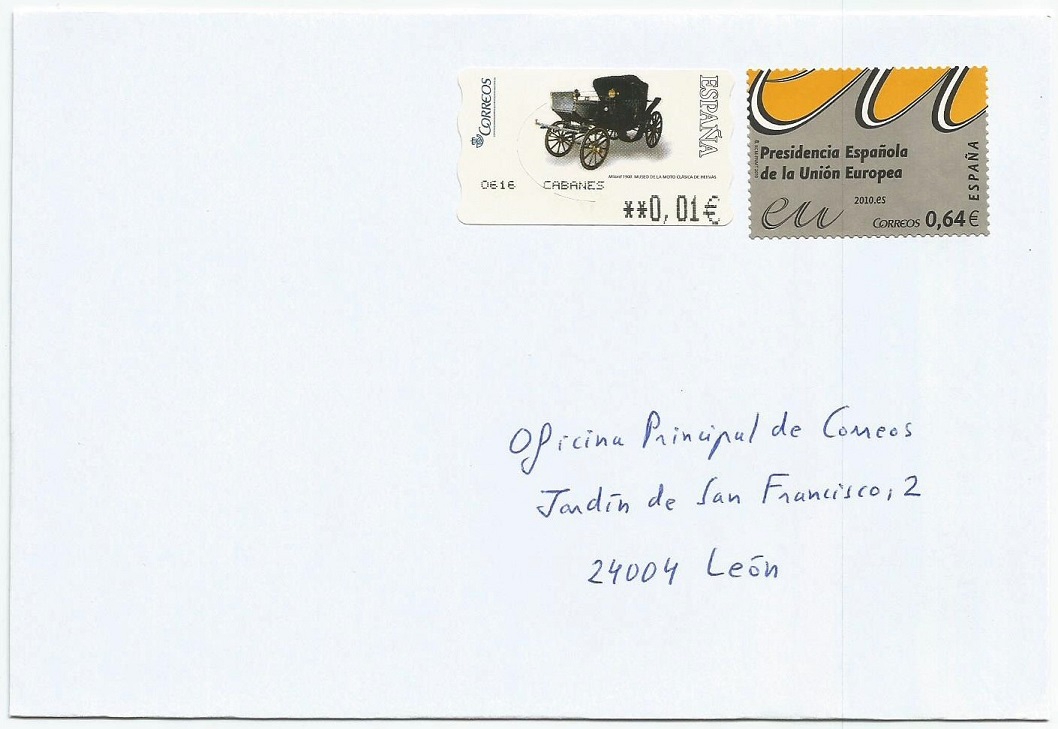 CORREOS
ESPAÑA
Milord 1900 MUSEO DE LA MOTO CLÁSICA DE HERVÁS
0616 CABANES
**0,01€
eu
Presidencia Española
de la Unión Europea
2010.es
eu
CORREOS 0,64€
ESPAÑA
Oficina Principal de Correos
Jardín de San Francisco, 2
24004 León